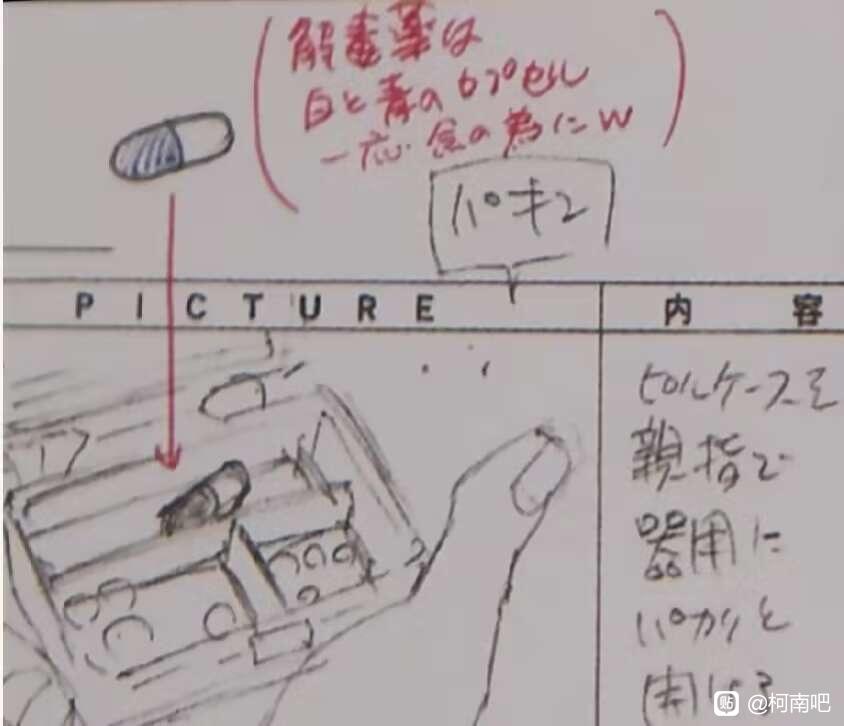 解毒薬は
白と青のカプセル
一応念の為にw
パキン
PICTURE
内容
ピルケースを
親指で
器用に
パカリと
開ける
貼 @柯南吧